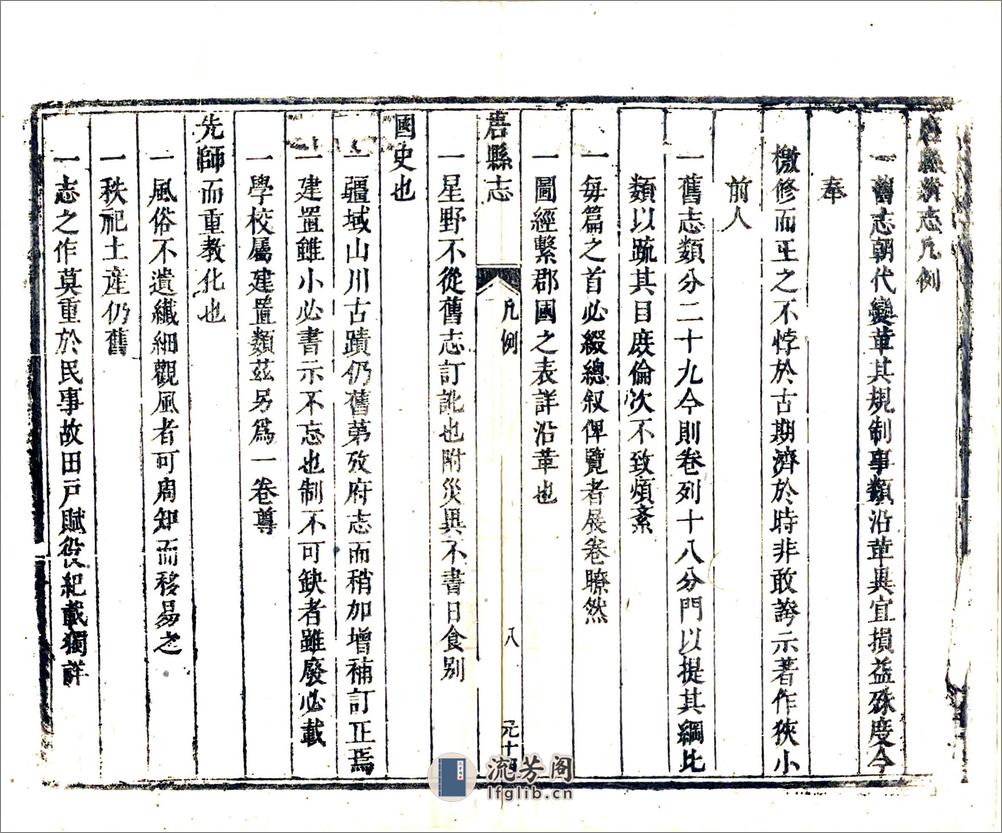 縣新志凡例
一舊志朝代變革其規制事類沿革異宜損益殊度今
奉
檄修而正之不悖於古期濟於時非敢誇示著作狹小
前人
一舊志類分二十九今則卷列十八分門以提其綱比
類以疏其目庶倫次不致煩紊
一每篇之首必綴總叙俾覽者展卷瞭然
一圖經繫郡國之表詳沿革也
唐縣志
凡例
八
一星野不從舊志訂訛也附災異不書日食别
國史也
一疆域山川古蹟仍舊第攷府志而稍加增補訂正焉
一建置雖小必書示不忘也制不可缺者雖廢必載
一學校屬建置類茲另爲一卷尊
先師而重教化也
一風俗不遺纖細觀風者可周知而移易之
一秩祀土產仍舊
一志之作莫重於民事故田戸賦役紀載獨詳
流芳阁
lfglib.cn